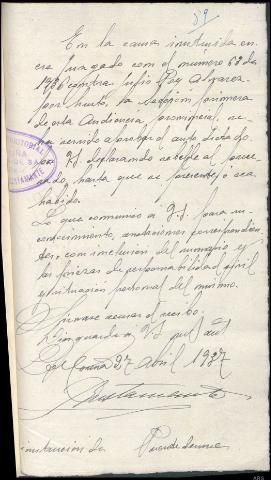 59
En la causa instruida en
ese Juzgado con el numero 68 de
1936 contra Julio Rey Alvarez
por hurto, la Sección primera
de esta Audiencia provincial, se
ha servido aprobar el auto dictado
por declarando rebelde al proce-
sado, hasta que se presente o sea
habido.
Lo que comunico a V.S. para su
conocimiento, anotaciones correspondien-
tes, con inclusion del sumario y
las piezas de responsabilidad civil
y situacion personal del mismo.
Sirvase acusar el recibo.
Dios guarde a V.S. muchos años
Coruña 27 Abril 1937
Bustamante
instruccion de Puentedeume